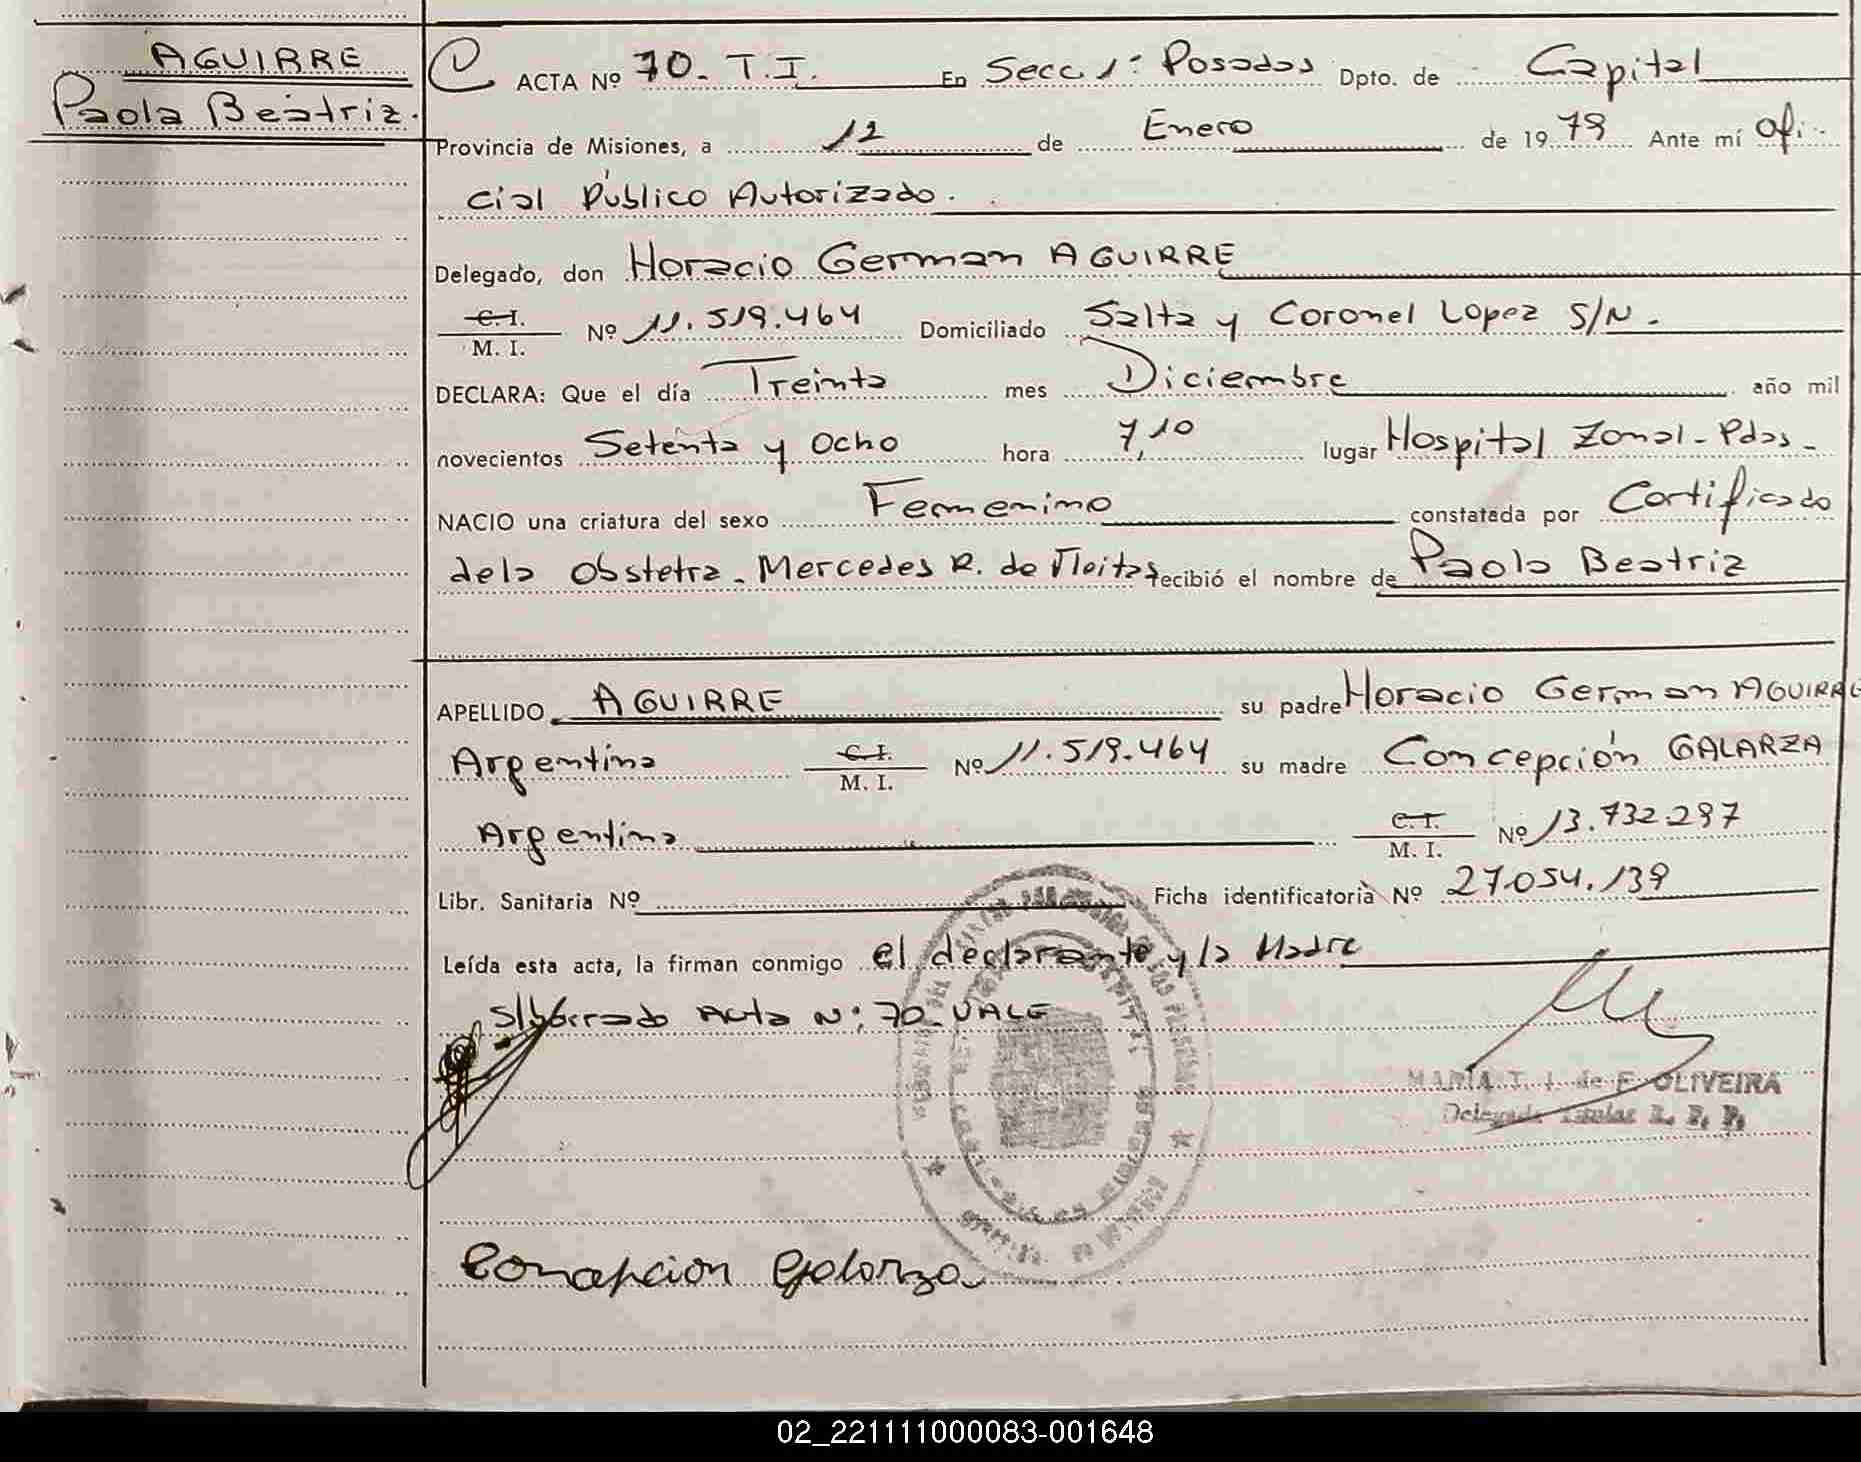 AGUIRRE
Paola Beatriz.
ACTA Nº 70. T.I. En Secc 1ª Posadas Dpto. de Capital
Provincia de Misiones, a 12 de Enero de 1979 Ante mí Ofi-
cial Público Autorizado.
Delegado, don Horacio German AGUIRRE
C.I. M. I. Nº 11.519.464 Domiciliado Salta y Coronel Lopez S/N.
DECLARA: Que el día Treinta mes Diciembre año mil
novecientos Setenta y Ocho hora 7,10 lugar Hospital Zonal-Pdas-
NACIO una criatura del sexo Femenino constatada por Certificado
dela Obstetra. Mercedes R. de Fleitas recibió el nombre de Paola Beatriz
APELLIDO AGUIRRE su padre Horacio German AGUIRRE
Argentina C.I. M. I. Nº 11.519.464 su madre Concepción GALARZA
Argentina C.I. M. I. Nº 13.732.297
Libr. Sanitaria Nº Ficha identificatoria Nº 27.054.139
Leída esta acta, la firman conmigo el declarante y la Madre
S/borrado Acta Nº: 70. VALE
MARIA T. I. de F. OLIVEIRA
Delegada Titular R. P. P.
Concepcion Galarza
02_221111000083-001648